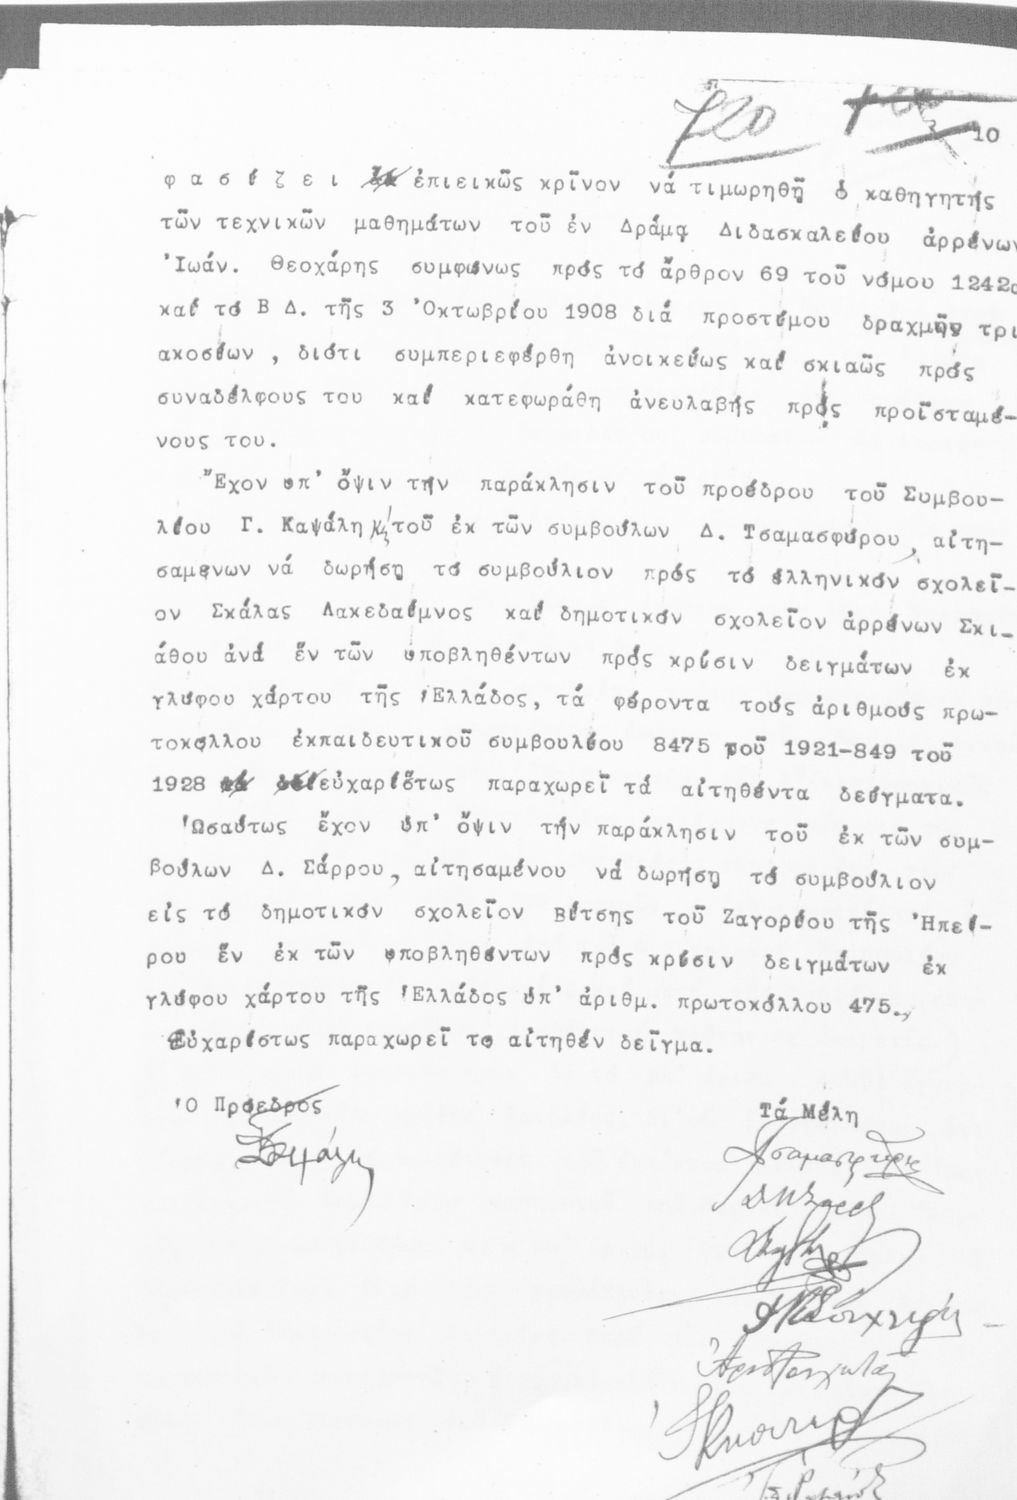 720
10
φ α σ ί ζ ε ι ἐπιεικῶς κρῖνον νά τιμωρηθῇ ὁ καθηγητής
τῶν τεχνικῶν μαθημάτων τοῦ ἐν Δράμᾳ Διδασκαλείου ἀρρένων
Ἰωάν. Θεοχάρης συμφώνως πρός τό ἄρθρον 69 τοῦ νόμου 1242
καί τό Β Δ. τῆς 3 Ὀκτωβρίου 1908 διά προστίμου δραχμῶν τρι
ακοσίων , διότι συμπεριεφέρθη ἀνοικείως καί σκιαῶς πρός
συναδέλφους του καί κατεφωράθη ἀνευλαβής πρός προϊσταμέ-
νους του.
Ἔχον ὑπ' ὄψιν τήν παράκλησιν τοῦ προέδρου τοῦ Συμβου-
λίου Γ. Καψάλη κ τοῦ ἐκ τῶν συμβούλων Δ. Τσαμασφύρου, αἰτη-
σαμενων νά δωρήσῃ τό συμβούλιον πρός τό ἑλληνικόν σχολεῖ-
ον Σκάλας Λακεδαίμνος καί δημοτικόν σχολεῖον ἀρρένων Σκι-
άθου ἀνά ἕν τῶν ὑποβληθέντων πρός κρίσιν δειγμάτων ἐκ
γλύφου χάρτου τῆς Ἑλλάδος, τά φέροντα τούς ἀριθμούς πρω-
τοκόλλου ἐκπαιδευτικοῦ συμβουλίου 8475 τοῦ 1921-849 τοῦ
1928 εὐχαρίστως παραχωρεῖ τά αἰτηθέντα δείγματα.
Ὡσαύτως ἔχον ὑπ' ὄψιν τήν παράκλησιν τοῦ ἐκ τῶν συμ-
βούλων Δ. Σάρρου, αἰτησαμένου νά δωρήσῃ τό συμβούλιον
εἰς τό δημοτικόν σχολεῖον Βίτσης τοῦ Ζαγορίου τῆς Ἠπεί-
ρου ἕν ἐκ τῶν ὑποβληθέντων πρός κρίσιν δειγμάτων ἐκ
γλύφου χάρτου τῆς Ἑλλάδος ὑπ' ἀριθμ. πρωτοκόλλου 475.,
Εὐχαρίστως παραχωρεῖ το αἰτηθέν δεῖγμα.
Ὁ Πρόεδρος
Τά Μέλη